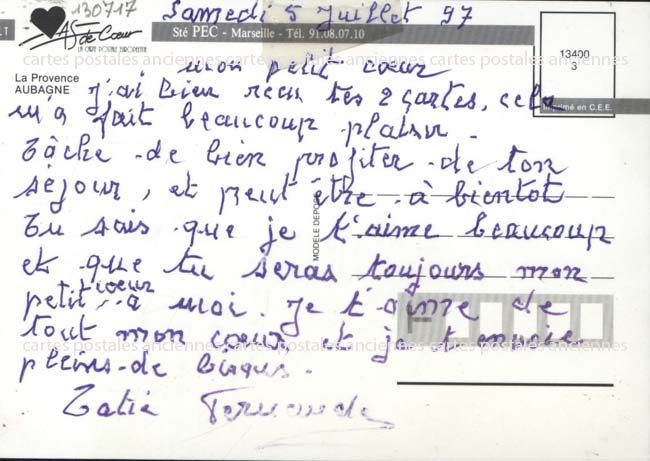 130717
Samedi 5 Juillet 97
AS de Cœur
LA CARTE POSTALE EUROPEENNE
Sté PEC - Marseille - Tél. 91.08.07.10
13400
3
Imprimé en C.E.E.
La Provence
AUBAGNE
cartes postales anciennes cartes postales anciennes cartes postales anciennes
mon petit cœur
j'ai bien recu tes 2 cartes, cela
m'a fait beaucoup plaisir.
Tâche de bien profiter de ton
séjour, et peut être à bientot
Tu sais que je t'aime beaucoup
et que tu seras toujours mon
petit cœur à moi. Je t'aime de
tout mon cœur et je t'envoie
pleins de bisous.
Tatie Fernande
MODELE DEPOSE
cartes postales anciennes cartes postales anciennes cartes postales anciennes